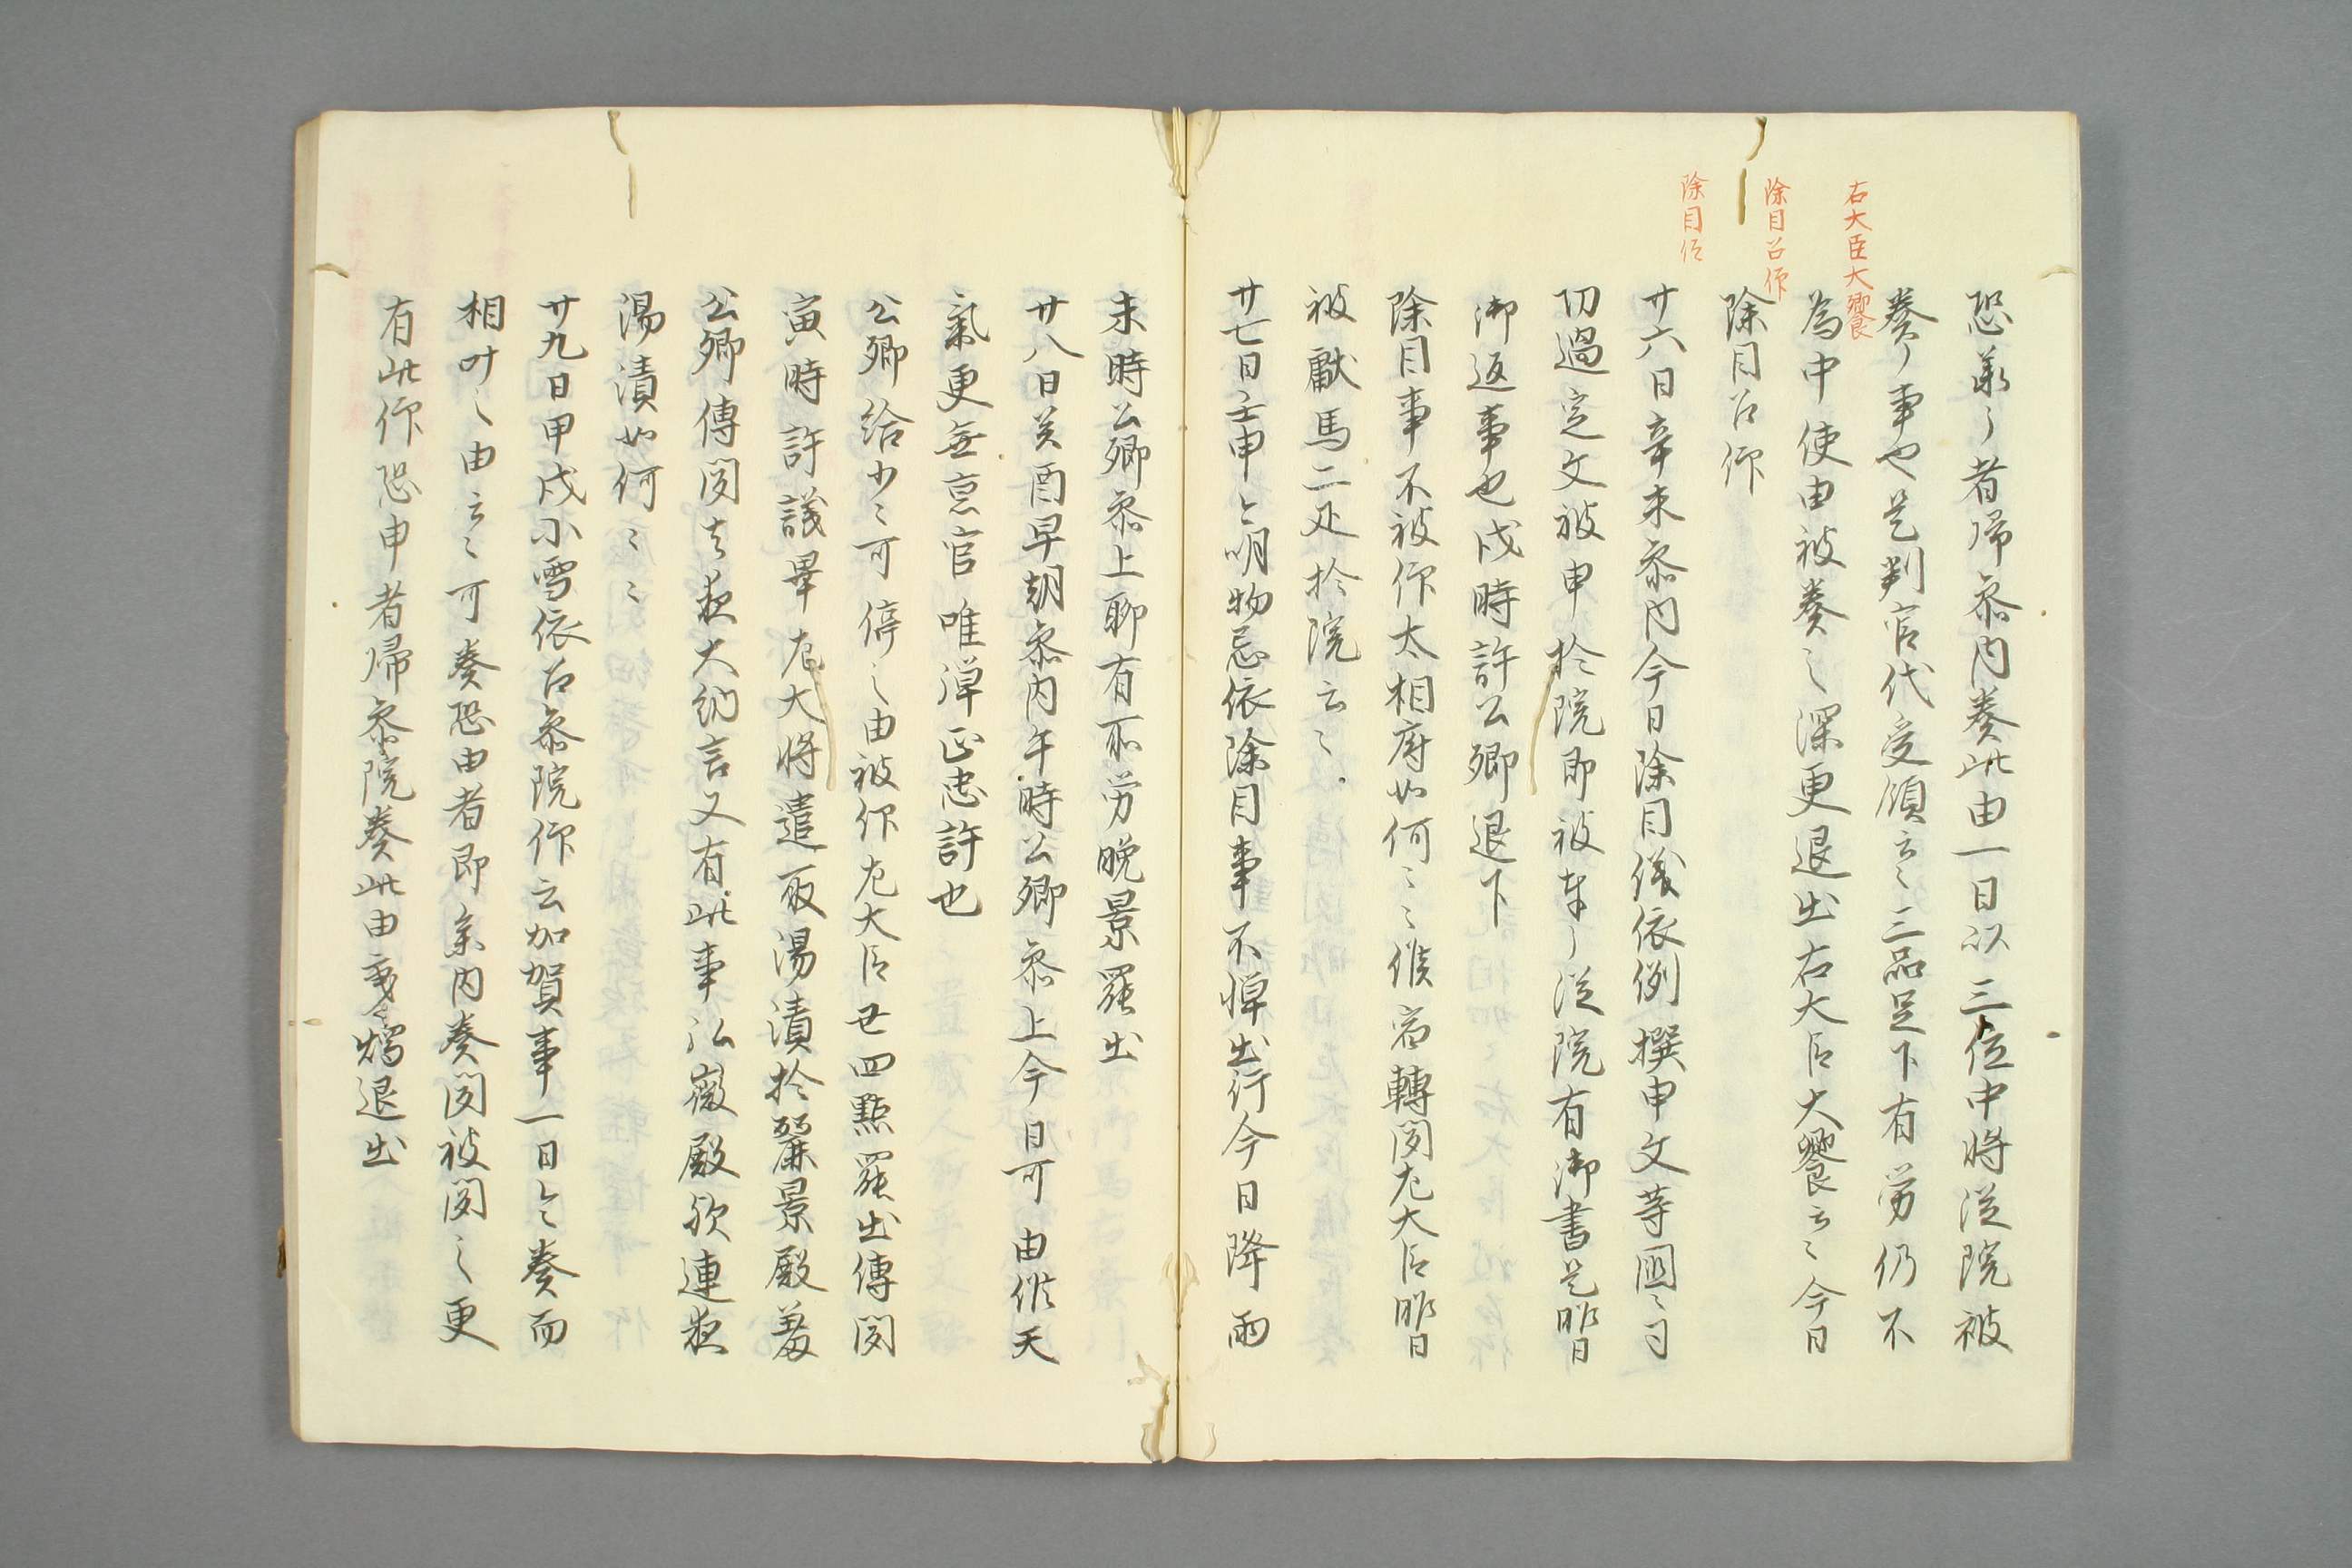 右大臣大饗
除目召仰
除目議
恐承了者帰参内奏此由一日以三位中将従院被
奏了事也是判官代受領云々三品足下有労仍不
為中使由被奏之深更退出右大臣大饗云々今日
除目召仰
廿六日辛未参内今日除目儀依例撰申文等國々司
功過定文被申於院即被奉了従院有御書是昨日
御返事也戌時許公卿退下
除目事不被仰太相府如何々々候宿轉聞左大臣昨日
被獻馬二疋於院云々
廿七日壬申今明物忌依除目事不憚出行今日降雨
未時公卿参上聊有所労晩景罷出
廿八日癸酉早朝参内午時公卿参上今日可由候天
氣更無京官唯弾正忠許也
公卿給少々可停之由被仰左大臣丑四點罷出傳聞
寅時許議畢左大将遣取湯漬於麗景殿羞
公卿傳聞去夜大納言又有此事弘徽殿欤連夜
湯漬如何々々
廿九日甲戌小雪依召参院仰云加賀事一日令奏而
相叶之由云々可奏恐由者即参内奏聞被聞之更
有此仰恐申者帰参院奏此由秉燭退出